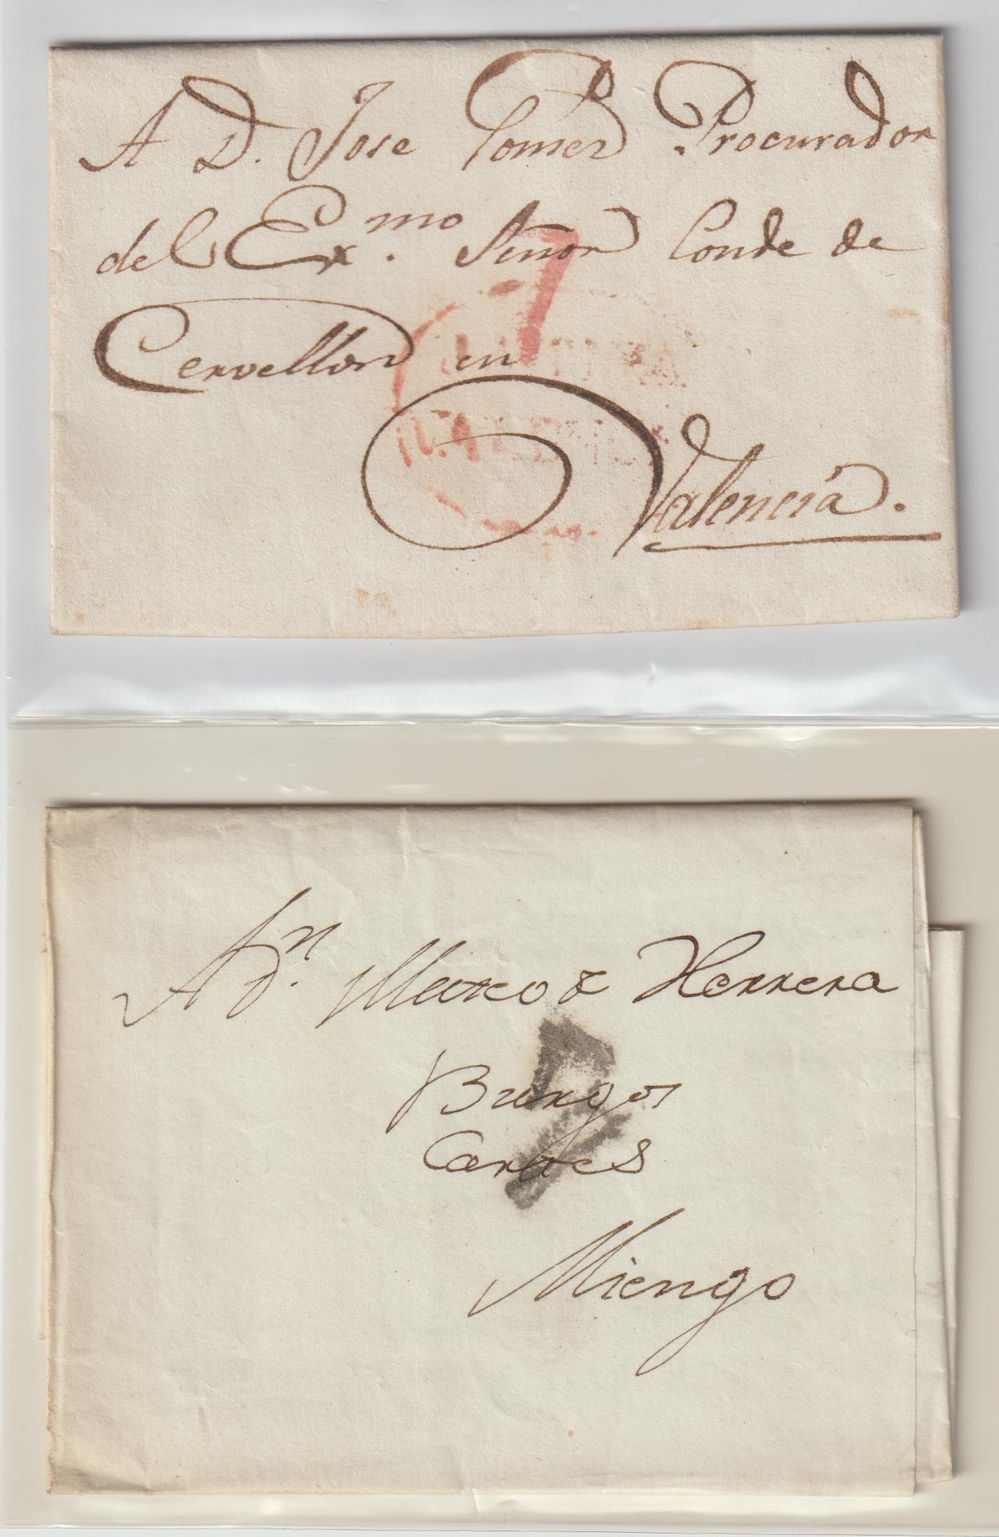 A D. Jose Gomez Procurador
del Exmo. Señor Conde de
7
Cervellon en
Valencia.
A Dn. Mateo de Herrera
7
Burgos
Cartes
Miengo